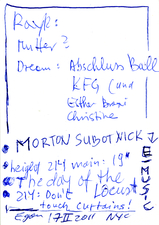 Mutter?
Dream: Abschluss Ball
KFG (und
Esther
Christine
MORTON SUBOTNICK
E-MUSIC
height 214 main: 19"
The day of the
Locust
214: Don't
touch curtains!
17 II 2011 NYC